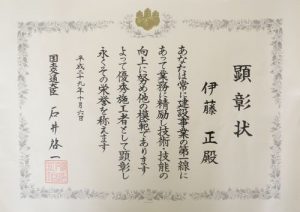 顕彰状
伊藤 正 殿
あなたは常に建設事業の第一線に
あって業務に精励し技術・技能の
向上に努め他の模範であります
よって優秀施工者として顕彰し
永くその栄誉を称えます
平成二十九年十月六日
国土交通大臣 石井啓一